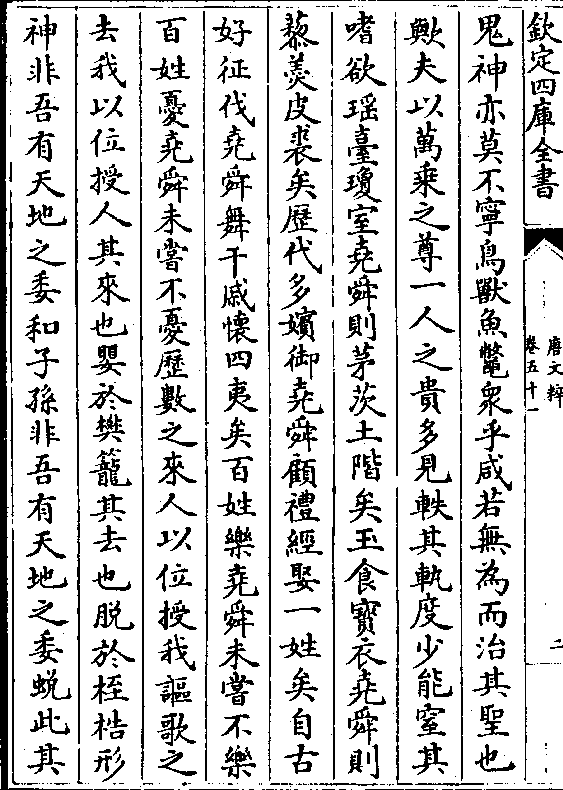 欽定四庫全書
唐文粹
卷五十一
二
鬼神亦莫不寧鳥獸魚鼈衆乎咸若無為而治其聖也
歟夫以萬乘之尊一人之貴多見軼其軌度少能窒其
嗜欲瑶臺瓊室堯舜則茅茨土階矣玉食寳衣堯舜則
藜羮皮裘矣歴代多嬪御堯舜顧禮經娶一姓矣自古
好征伐堯舜舞干戚懷四夷矣百姓樂堯舜未嘗不樂
百姓憂堯舜未嘗不憂歴數之來人以位授我謳歌之
去我以位授人其來也嬰於樊籠其去也脱於桎梏形
神非吾有天地之委和子孫非吾有天地之委蜕此其